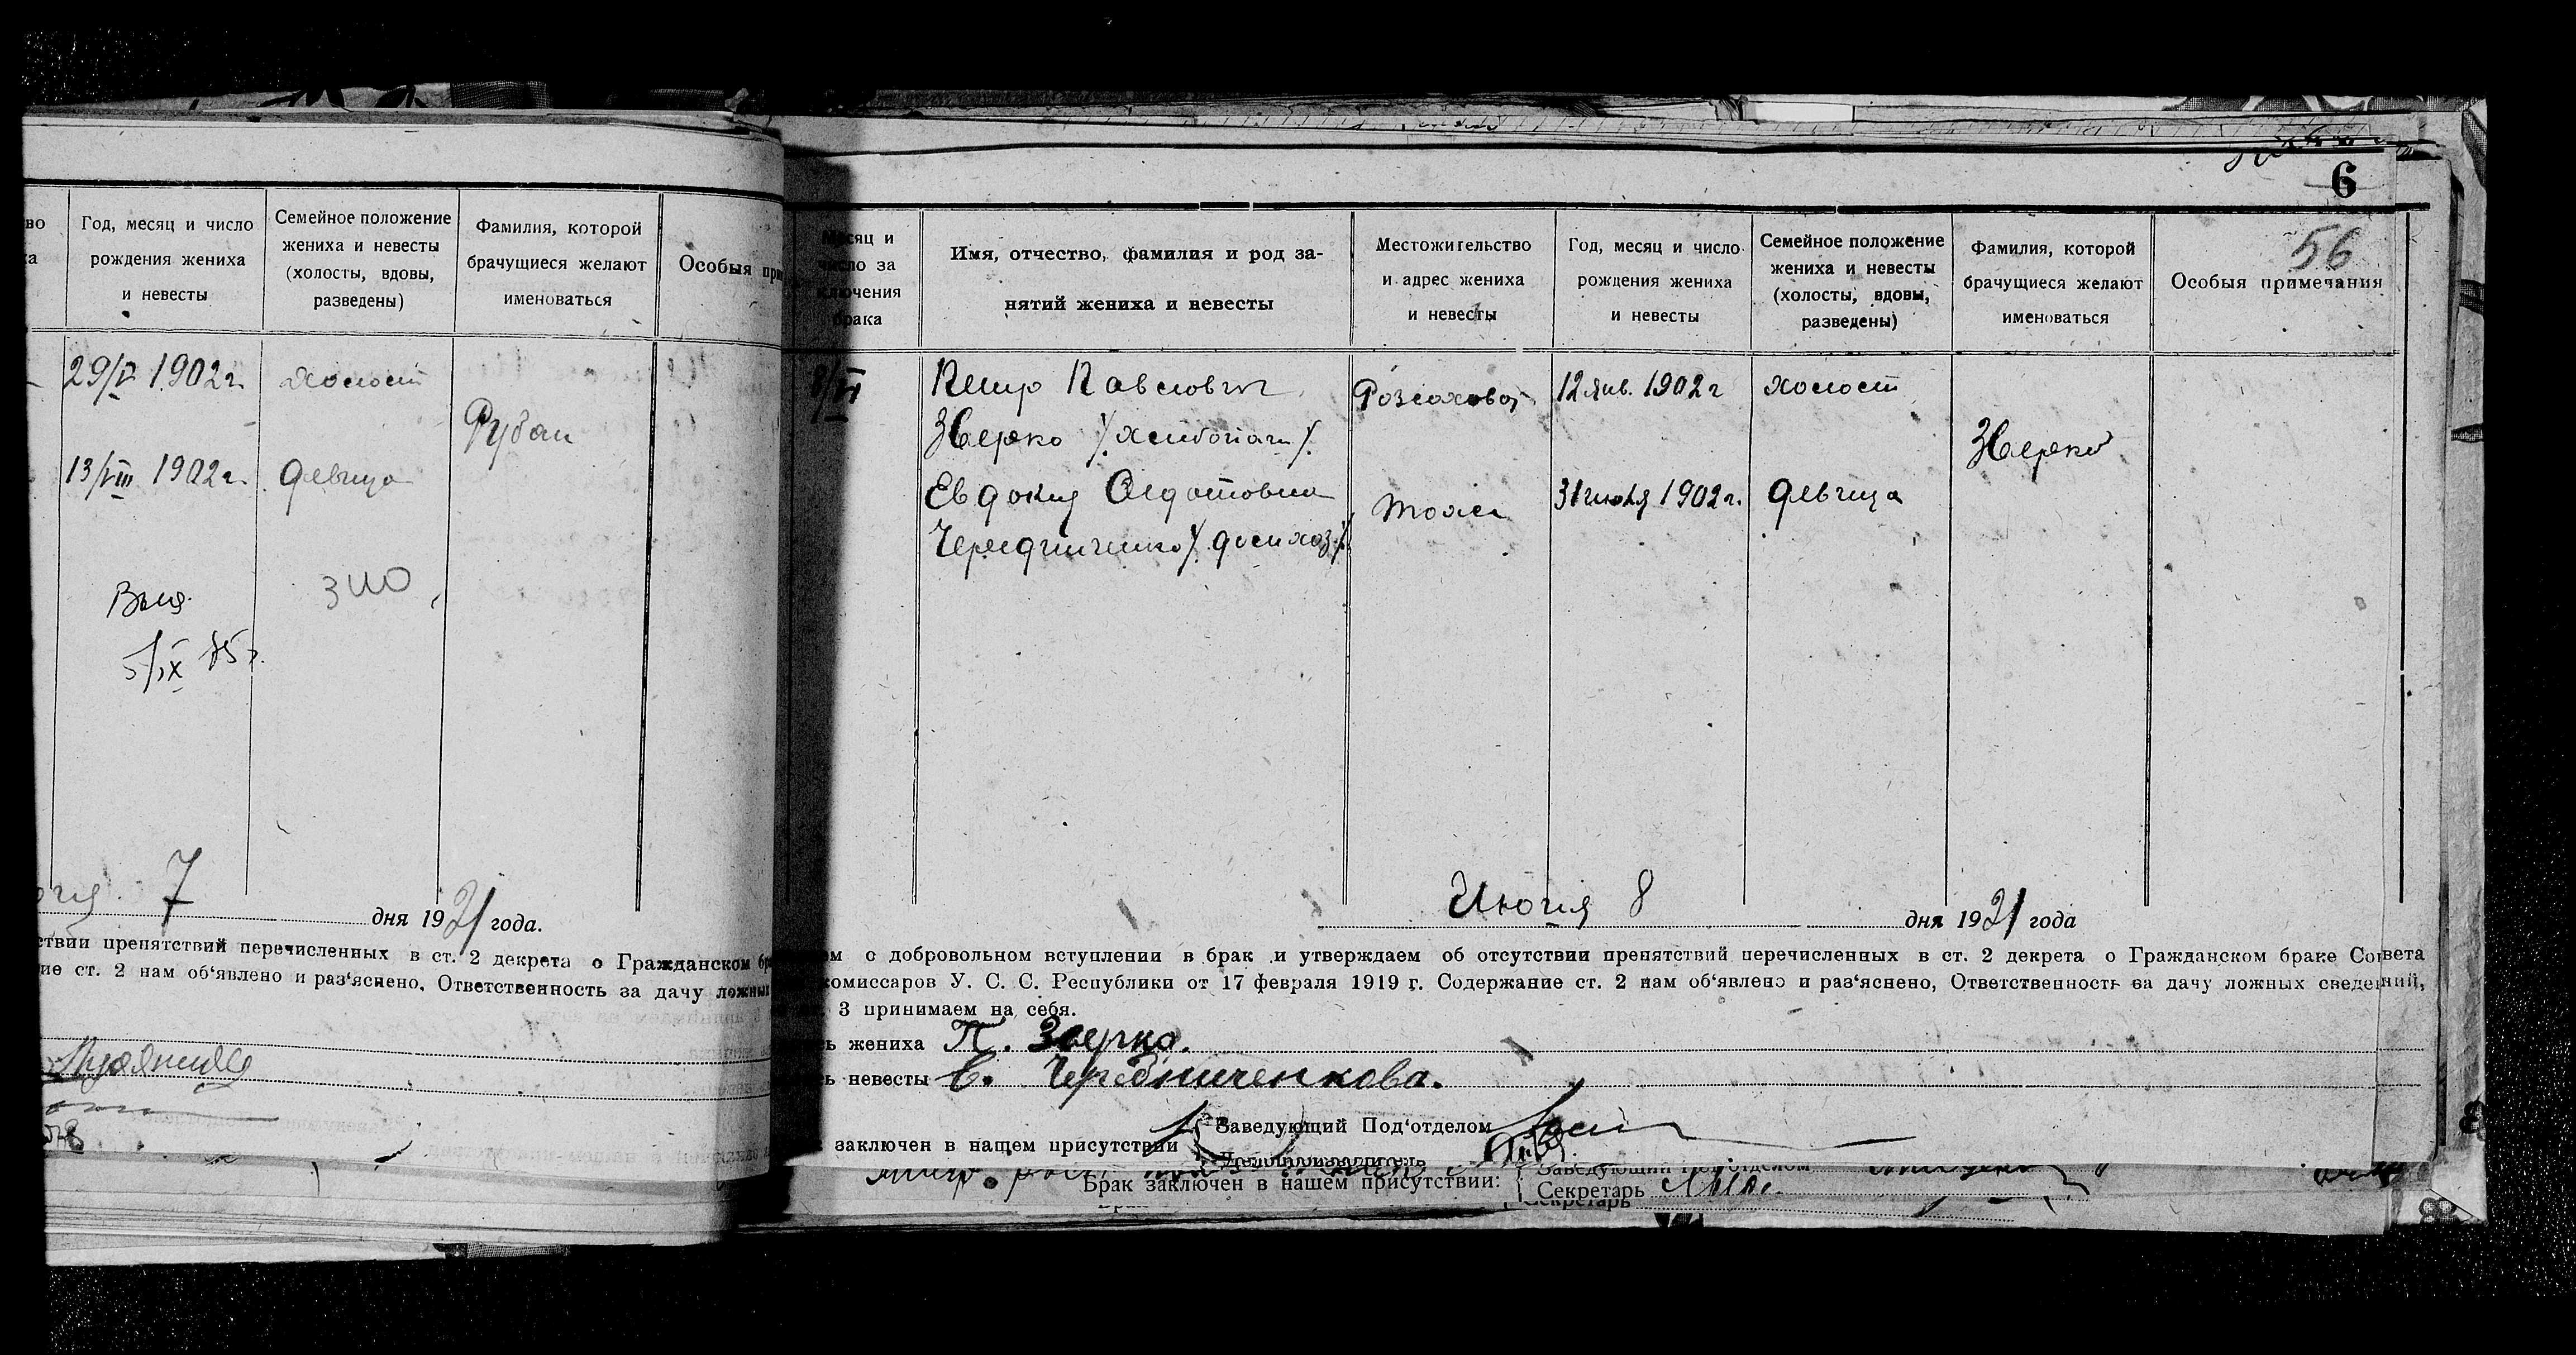 Год, месяц и число
рождения жениха
и невесты
Семейное положение
жениха и невесты
(холосты, вдовы,
разведены)
Фамилия, которой
брачущиеся желают
именоваться
Особыя при
29/V 1902 г.
холост
Рубан
13/VIII 1902 г.
девица
5/IX 75 г.
7 дня 1921 года.
ствии препятствий перечисленных в ст. 2 декрета о Гражданском бра
ие ст. 2 нам об‘явлено и раз‘яснено, Ответственность за дачу ложных
6
56
Месяц и
число за
ключения
брака
Имя, отчество, фамилия и род за-
нятий жениха и невесты
Местожительство
и адрес жениха
и невесты
Год, месяц и число
рождения жениха
и невесты
Семейное положение
жениха и невесты
(холосты, вдовы,
разведены)
Фамилия, которой
брачущиеся желают
именоваться
Особыя примечания
8/VI
Петр Павлович
12 янв. 1902 г
холост
Зверко
Зверко
Евдокия Федотовна
тоже
31 июля 1902 г.
девица
Чередниченко /домхоз./
Июня 8 дня 1921 года
ом о добровольном вступлении в брак и утверждаем об отсутствии препятствий перечисленных в ст. 2 декрета о Гражданском браке Совета
комиссаров У. С. С. Республики от 17 февраля 1919 г. Содержание ст. 2 нам об‘явлено и раз‘яснено, Ответственность за дачу ложных сведений,
3 принимаем на себя.
ь жениха П. Зверко.
ь невесты Е. Чередниченкова.
Заведующий Под‘отделом
заключен в нащем присутствии
Делопроизводитель
Заведующий Под‘отделом
Брак заключен в нашем присутствии:
Секретарь
Секретарь